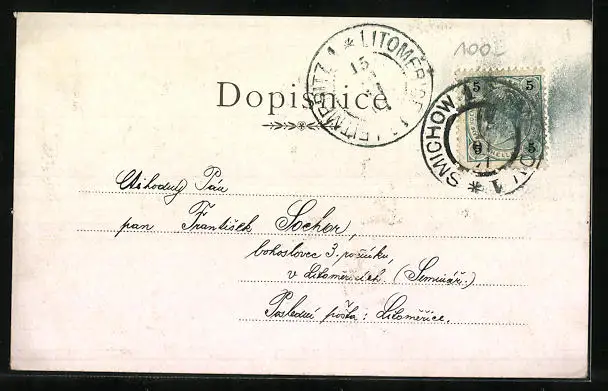 1002
LITOMĚŘICE 1 * LEITMERITZ 1
15
Dopisnice
5 5
SMICHOW 1
* 1
Ctihodný Pán
pan František Sochor,
bohoslovec 3. ročníku,
v Litoměřicích (Seminář.)
Poslední pošta: Litoměřice.